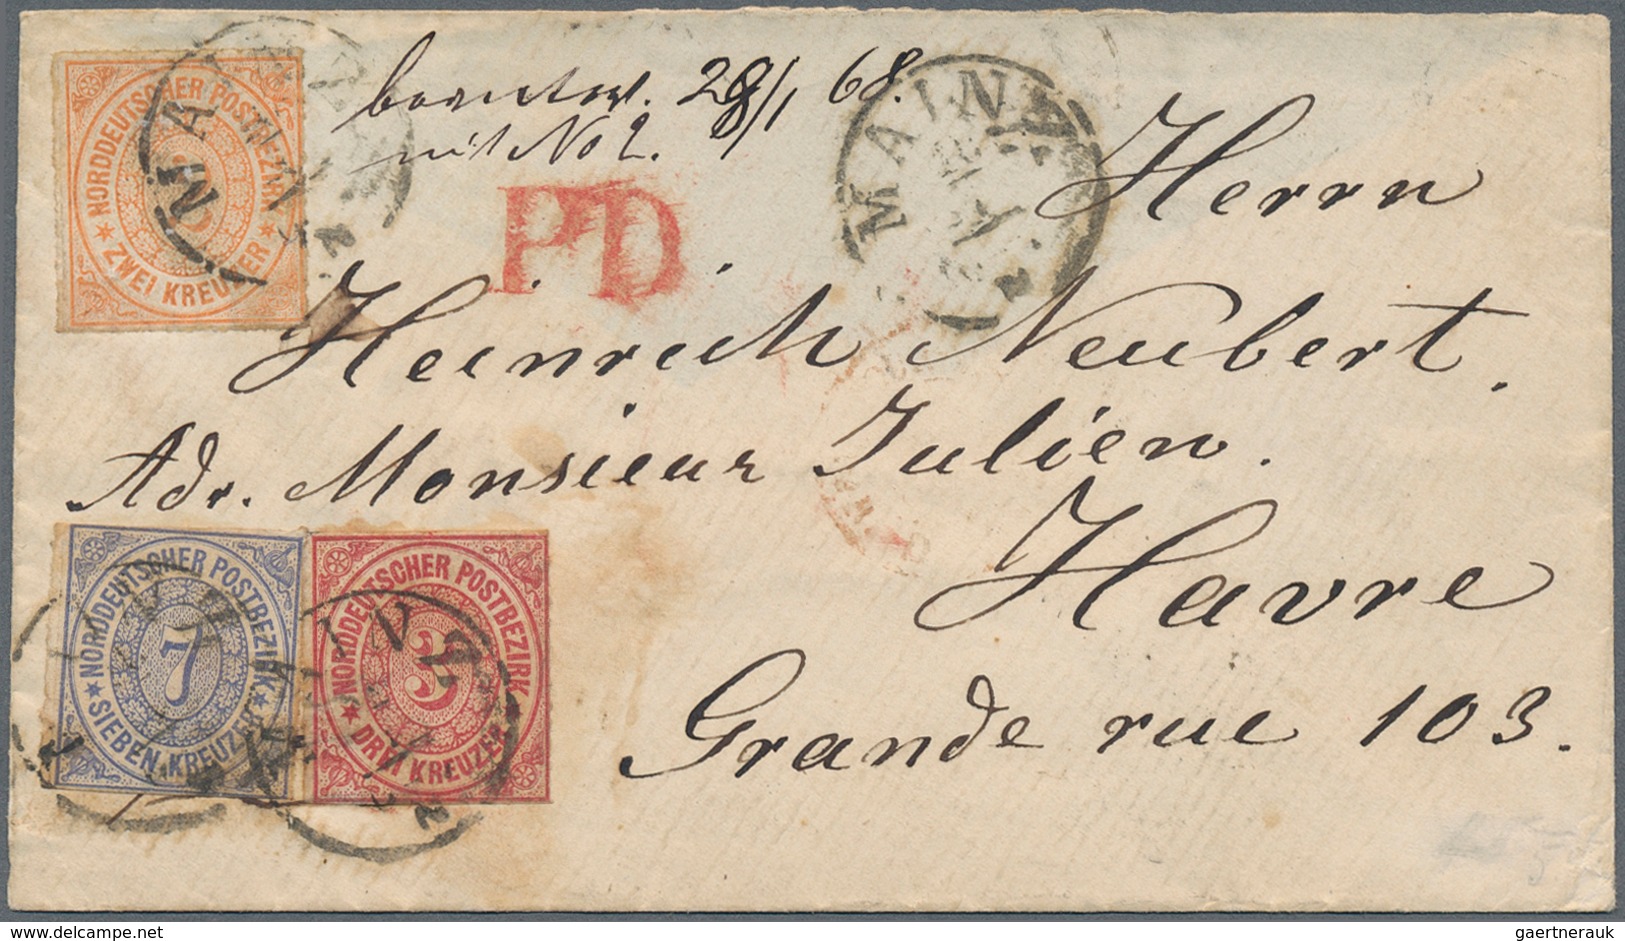 beantw. 28/1 68.
mit No 2.
NORDDEUTSCHER POSTBEZIRK
2
* ZWEI KREUZER *
MAINZ
PD
MAINZ
Herrn
Heinrich Neubert.
Adr. Monsieur Julien.
Havre
Grande rue 103.
NORDDEUTSCHER POSTBEZIRK
7
* SIEBEN KREUZER *
NORDDEUTSCHER POSTBEZIRK
3
* DREI KREUZER *
MAINZ
delcampe.net
gaertnerauk